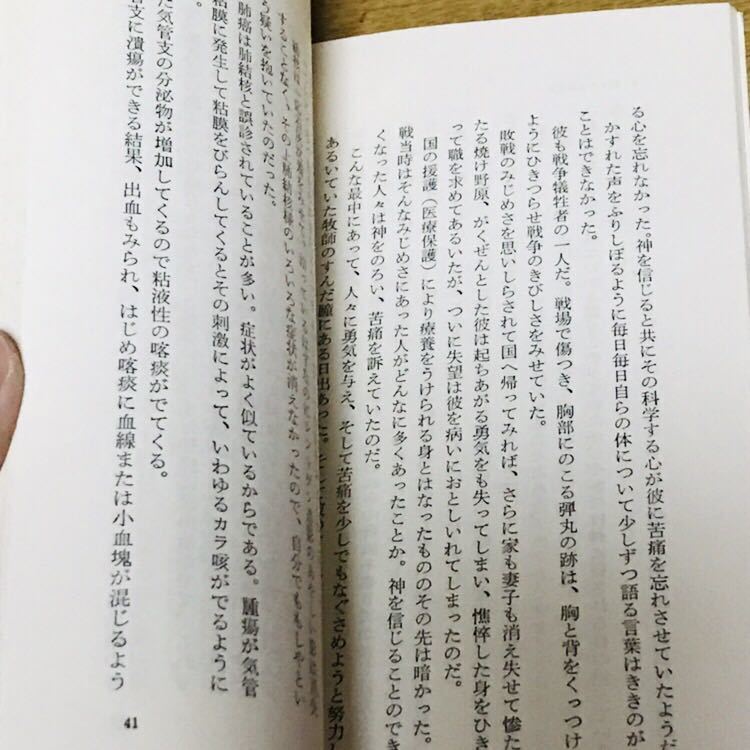 る心を忘れなかった。神を信じると共にその科学する心が彼に苦痛を忘れさせていたようだ
かすれた声をふりしぼるように毎日毎日自らの体について少しずつ語る言葉はききのが
ことはできなかった。
彼も戦争犠牲者の一人だ。戦場で傷つき、胸部にのこる弾丸の跡は、胸と背をくっつけ
ようにひきつらせ戦争のきびしさをみせていた。
敗戦のみじめさを思いしらされて国へ帰ってみれば、さらに家も妻子も消え失せて惨た
たる焼け野原、がくぜんとした彼は起ちあがる勇気をも失ってしまい、憔悴した身をひき
って職を求めてあるいたが、ついに失望は彼を病いにおとしいれてしまったのだ。
国の援護（医療保護）により療養をうけられる身とはなったもののその先は暗かった。
戦当時はそんなみじめさにあった人がどんなに多くあったことか。神を信じることのでき
くなった人々は神をのろい、苦痛を訴えていたのだ。
こんな最中にあって、人々に勇気を与え、そして苦痛を少しでもなぐさめようと努力し
あるいていた牧師のすんだ瞳にある日出あった。
することなく、その上肺結核様のいろいろな症状が消えなかったので、自分でももしやとい
う疑いを抱いていたのだった。
肺癌は肺結核と誤診されていることが多い。症状がよく似ているからである。腫瘍が気管
粘膜に発生して粘膜をびらんしてくるとその刺激によって、いわゆるカラ咳がでるように
た気管支の分泌物が増加してくるので粘液性の喀痰がでてくる。
管支に潰瘍ができる結果、出血もみられ、はじめ喀痰に血線または小血塊が混じるよう
41